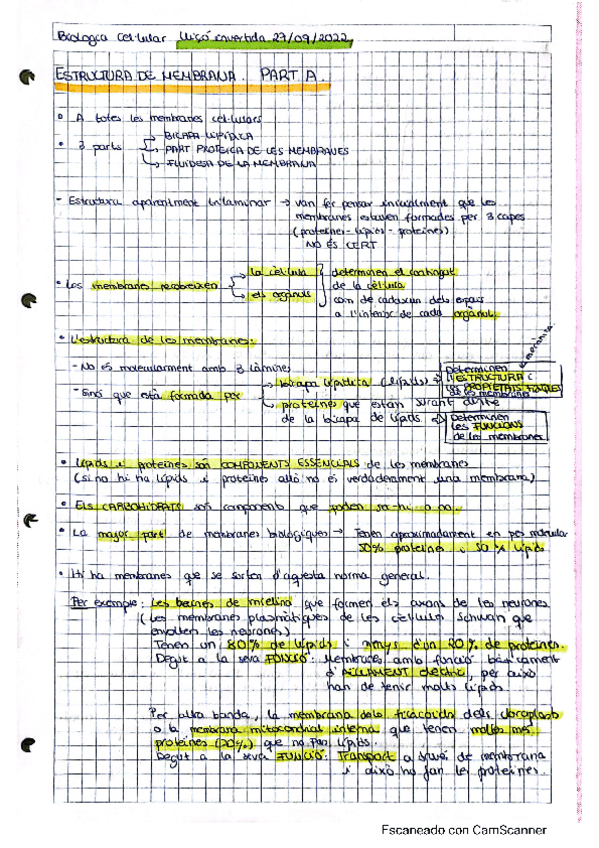 Biologia Cel·lular lliçó invertida 27/09/2022
ESTRUCTURA DE MEMBRANA. PART A.
• A totes les membranes cel·lulars
BICAPA LIPÍDICA
• 3 parts PART PROTEICA DE LES MEMBRANES
FLUIDESA DE LA MEMBRANA
- Estructura aparentment trilaminar → van fer pensar inicialment que les
membranes estaven formades per 3 capes
(proteïnes - lípids - proteïnes)
NO ÉS CERT
la cèl·lula determinen el contingut
• Les membranes recobreixen de la cèl·lula
els orgànuls com de cadascun dels espais
a l'interior de cada orgànul.
• L'estructura de les membranes:
- No és molecularment amb 3 làmines
Determinen
l'ESTRUCTURA i
- Sinó que està formada per bicapa lipídica (lípids) ⇒ les PROPIETATS FÍSIQUES
de les membranes
proteïnes que estan surant dintre
de la bicapa de lípids ⇒ Determinen
les FUNCIONS
de les membranes
• Lípids i proteïnes són COMPONENTS ESSENCIALS de les membranes
(si no hi ha lípids i proteïnes allò no és verdaderament una membrana)
• Els CARBOHIDRATS són components que poden ser-hi o no.
• La major part de membranes biològiques → Tenen aproximadament en pes molecular
50% proteïnes i 50% lípids
• Hi ha membranes que se surten d'aquesta norma general.
Per exemple: Les beines de mielina que formen els axons de les neurones
(les membranes plasmàtiques de les cèl·lules Schwan que
envolten les neurones)
Tenen un 80% de lípids i menys d'un 20% de proteïnes.
Degut a la seva FUNCIÓ: Membranes amb funció bàsicament
d'AÏLLAMENT elèctric, per això
han de tenir molts lípids
Per altra banda, la membrana dels tilacoids dels cloroplasts
o la membrana mitocondrial interna que tenen moltes més
proteïnes (70%) que no pas lípids.
Degut a la seva FUNCIÓ: Transport a través de membrana
i això ho fan les proteïnes.
Escaneado con CamScanner